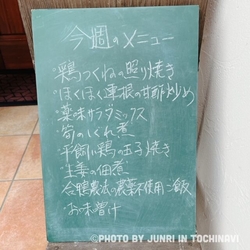 今週のメニュー
・鶏つくねの照り焼き
・ほくほく蓮根の甘酢炒め
・薬味サラダミックス
・筍のしぐれ煮
・平飼い鶏の玉子焼き
・生姜の佃煮
・合鴨農法の農薬不使用ご飯
・お味噌汁
©PHOTO BY JUNRI IN TOCHINAVI